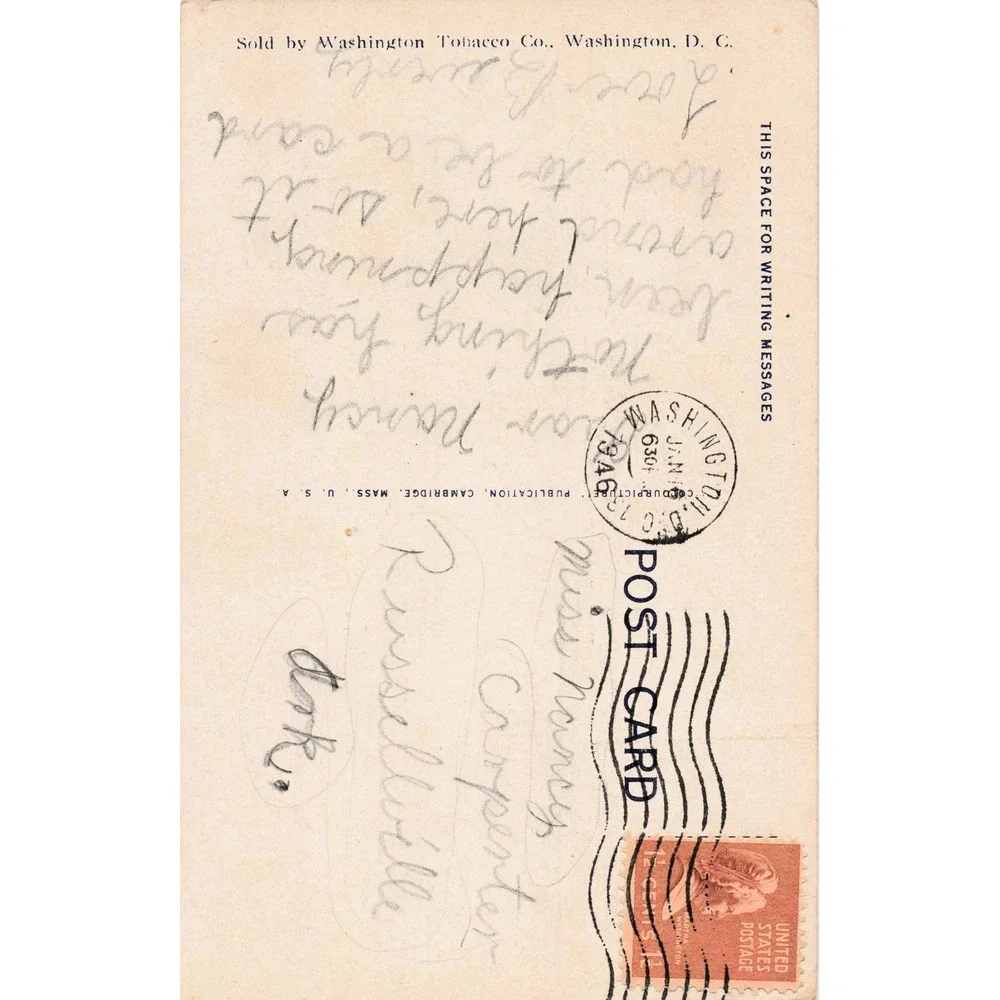 Sold by Washington Tobacco Co., Washington, D. C.
THIS SPACE FOR WRITING MESSAGES
Dear Nancy
Nothing has
been happning
arond here, so it
had to be a card
Love Beverly
"COLOURPICTURE" PUBLICATION, CAMBRIDGE, MASS., U. S. A.
POST CARD
WASHINGTON, D.C. 13
JAN 16
1946
UNITED
STATES
POSTAGE
1½ CENTS 1½
Miss Nancy
Carpenter
Russellville
Ark.